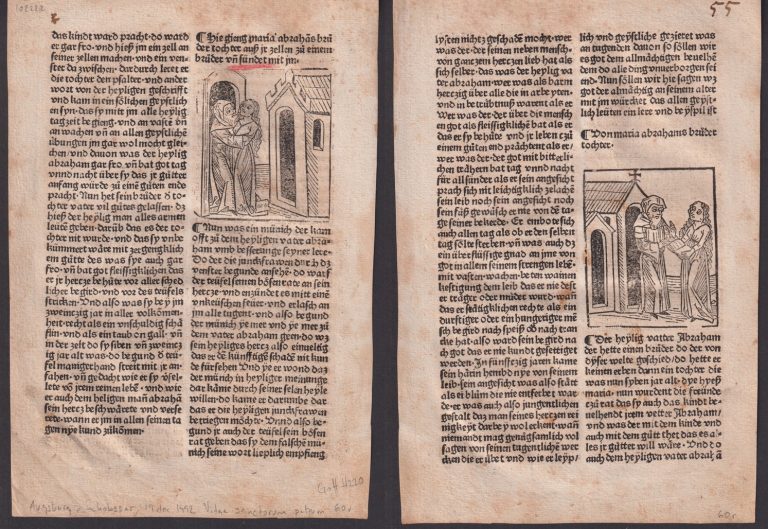 das kindt ward pracht · do ward
er gar fro · und hieß jm ein zell an
seiner zellen machen · und ein ven-
ster da zwischen · dardurch leret er
die tochter den psalter · und ander
wort von der heyligen geschrifft
und kam in ein sölichen geystlich
en syn · das sy mite jm alle heylig
tagzeit begieng · und an vasten vñ
an wachen vñ an allen geystlichen
übungen jm gar wol mocht gleі-
chen · und davon was der heylig
abraham gar fro · vñ bat got tag
vnnd nacht über sy das jr gütter
anfang würde zu eine güten ende
pracht · Nun het sein brüder d toch-
ter vater vil gütes gelassen · dz
hieß der heylig man alles armen
leuten geben · darūb das es der toch-
ter nit wurde · und das sy unbe-
kümmert wäre mit zergengklich
em gütte des was sye auch gar
fro · vñ bat got fleissigklichen das
er jr hercz behüte vor aller schед
licher begird · und vor des teüfels
stricken · Und also was sy bey jm
zweinczig jar in aller volkōmen-
heit · recht als ein unschuldig schäf-
lin · und als ein taub on gall · vñ in
der zeit do sy siben vñ zweinczig
jar alt was · do begund d teü-
fel manigerhand streit mit jr an-
fahen · vñ gedacht wie er sy vsel-
lete võ jrem reinen lebē · und wie
er auch dem heiligen mañ abrahā
sein hercz beschwärete · und vsere
rete · wann er jm in allen seinen ta-
gen nye kund zukōmen ·
Hie gieng maria abrahās brü
der tochter auß jr zellen zu einem
brüder vñ sündet mit jm ·
Nun was ein münich der kam
offt zu dem heyligen vater abra-
ham
Eer do die junckfrawen dar
venster begunde ansehē · do warf
der teüfel seinen bösen rate an sein
hercze · und enzündet es mit einē
vnkeüschen feüer · und erlasch an
jm alle tugent · und also begund
der münich ye mer und ye mer zu
dem vater abraham geen · do wz
sein heyliges hercz also einueltig
das er dē künfftigē schadē nit kun
de fürsehen · Und ye er wond daz
der münch in heyliger meinunge
dar käme durch seiner selen heyle
willen · do kame er darumbe dat
das er die heyligen junckfrawen
betriegen möchte · Vnnd also be-
gund jr auch der teüfel sein bösen
rat geben das sy dem falschē mü-
niche seine wort lieplich empfieng
Augsburg 1492 Vitae sanctorum patrum 60v
Goff H220
55
lysten nichtz geschadē mocht · wer
was der · der seinen neben mensch-
en von ganczem herczen lieb hat als
sich selber · das was der heylig va
ter abraham · wer was als barm
herczig über alle die in arbeyten ·
und in betrübtnuß warent als er
Wer was der · der über die mensch
en got als fleissigklich bat als er
das er sy behüte und jr leben czu
einem güten end prächte nt als er ·
wer was der · der got mit bitterli-
chen träheren bat tag vnnd nacht
für all sünder als er sein angesicht
sprach sich nit leichtigklich zelachē
sein leib noch sein angesicht noch
sein füß gewüsch er me von dē ta-
ge seiner bekerde · Er embote sich
auch allen tag als ob er den selben
tag sölte sterben · vñ was auch dz
ein überflüssig gnad an jm von
got in allem seinem strengen lebē ·
mit vasten · wachen · beten · wainen
kestigung dem leib das er nie dest
er träger oder müder wurd · wañ
das er stätigklichen rechte als ein
durstiger oder ein hungeriger mē
sch begird nach speiß oder nach tran
cke hat · also ward sein begird na
ch got das er nie kund gesettiget
werden · In fünffzig jaren kame
sein härin hemd nye von seinem
leib · sein angesicht was also stätt
als ei blüm die nit entferbet wa-
de · er was auch also jungentlichen
gestalt
niemand mag genügsamlich vol
sagen von seinen tugentliche wer
cken die er übet · und wie er leyp
lich und geystliche gezieret was
an tugenden davon so söllen wir
es got dem allmächtigen beuelhen
dem do alle ding vnuerborgen sei
end · Nun söllen wir hie sagen wz
got der almächtig an seinem alter
mit jm würcket das allen geystl-
lich leüten ein lere und beyspil ist
Von maria abrahams brüder
tochter ·
Der heylig vatter Abraham
der hette einen brüder do der von
dyser welte geschied · do hette er
keinen erben dann ein tochter die
was nun syben jar alt · dye hyeß
maria · nun wurdent die freünde
czu rat das sy auch das kind be-
uelhendt jrem vetter Abraham ·
und was der mit dem kinde und
auch mit dem gütt thet das es al-
les jr güter will wäre · Und do
auch dem heyligen vater abrahā
60r